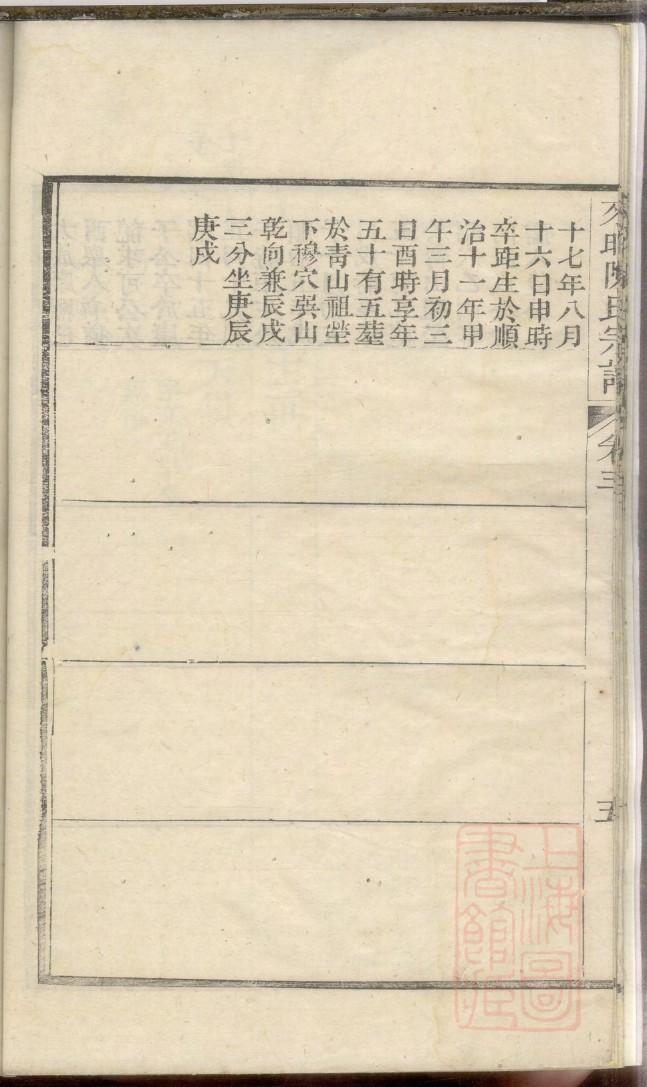 十七年八月
十六日申時
卒距生於順
治十一年甲
午三月初三
日酉時享年
五十有五塟
於靑山祖塋
下穆穴巽山
乾向兼辰戌
三分坐庚辰
庚戌
陳氏宗譜
卷三
五
上海圖書館藏